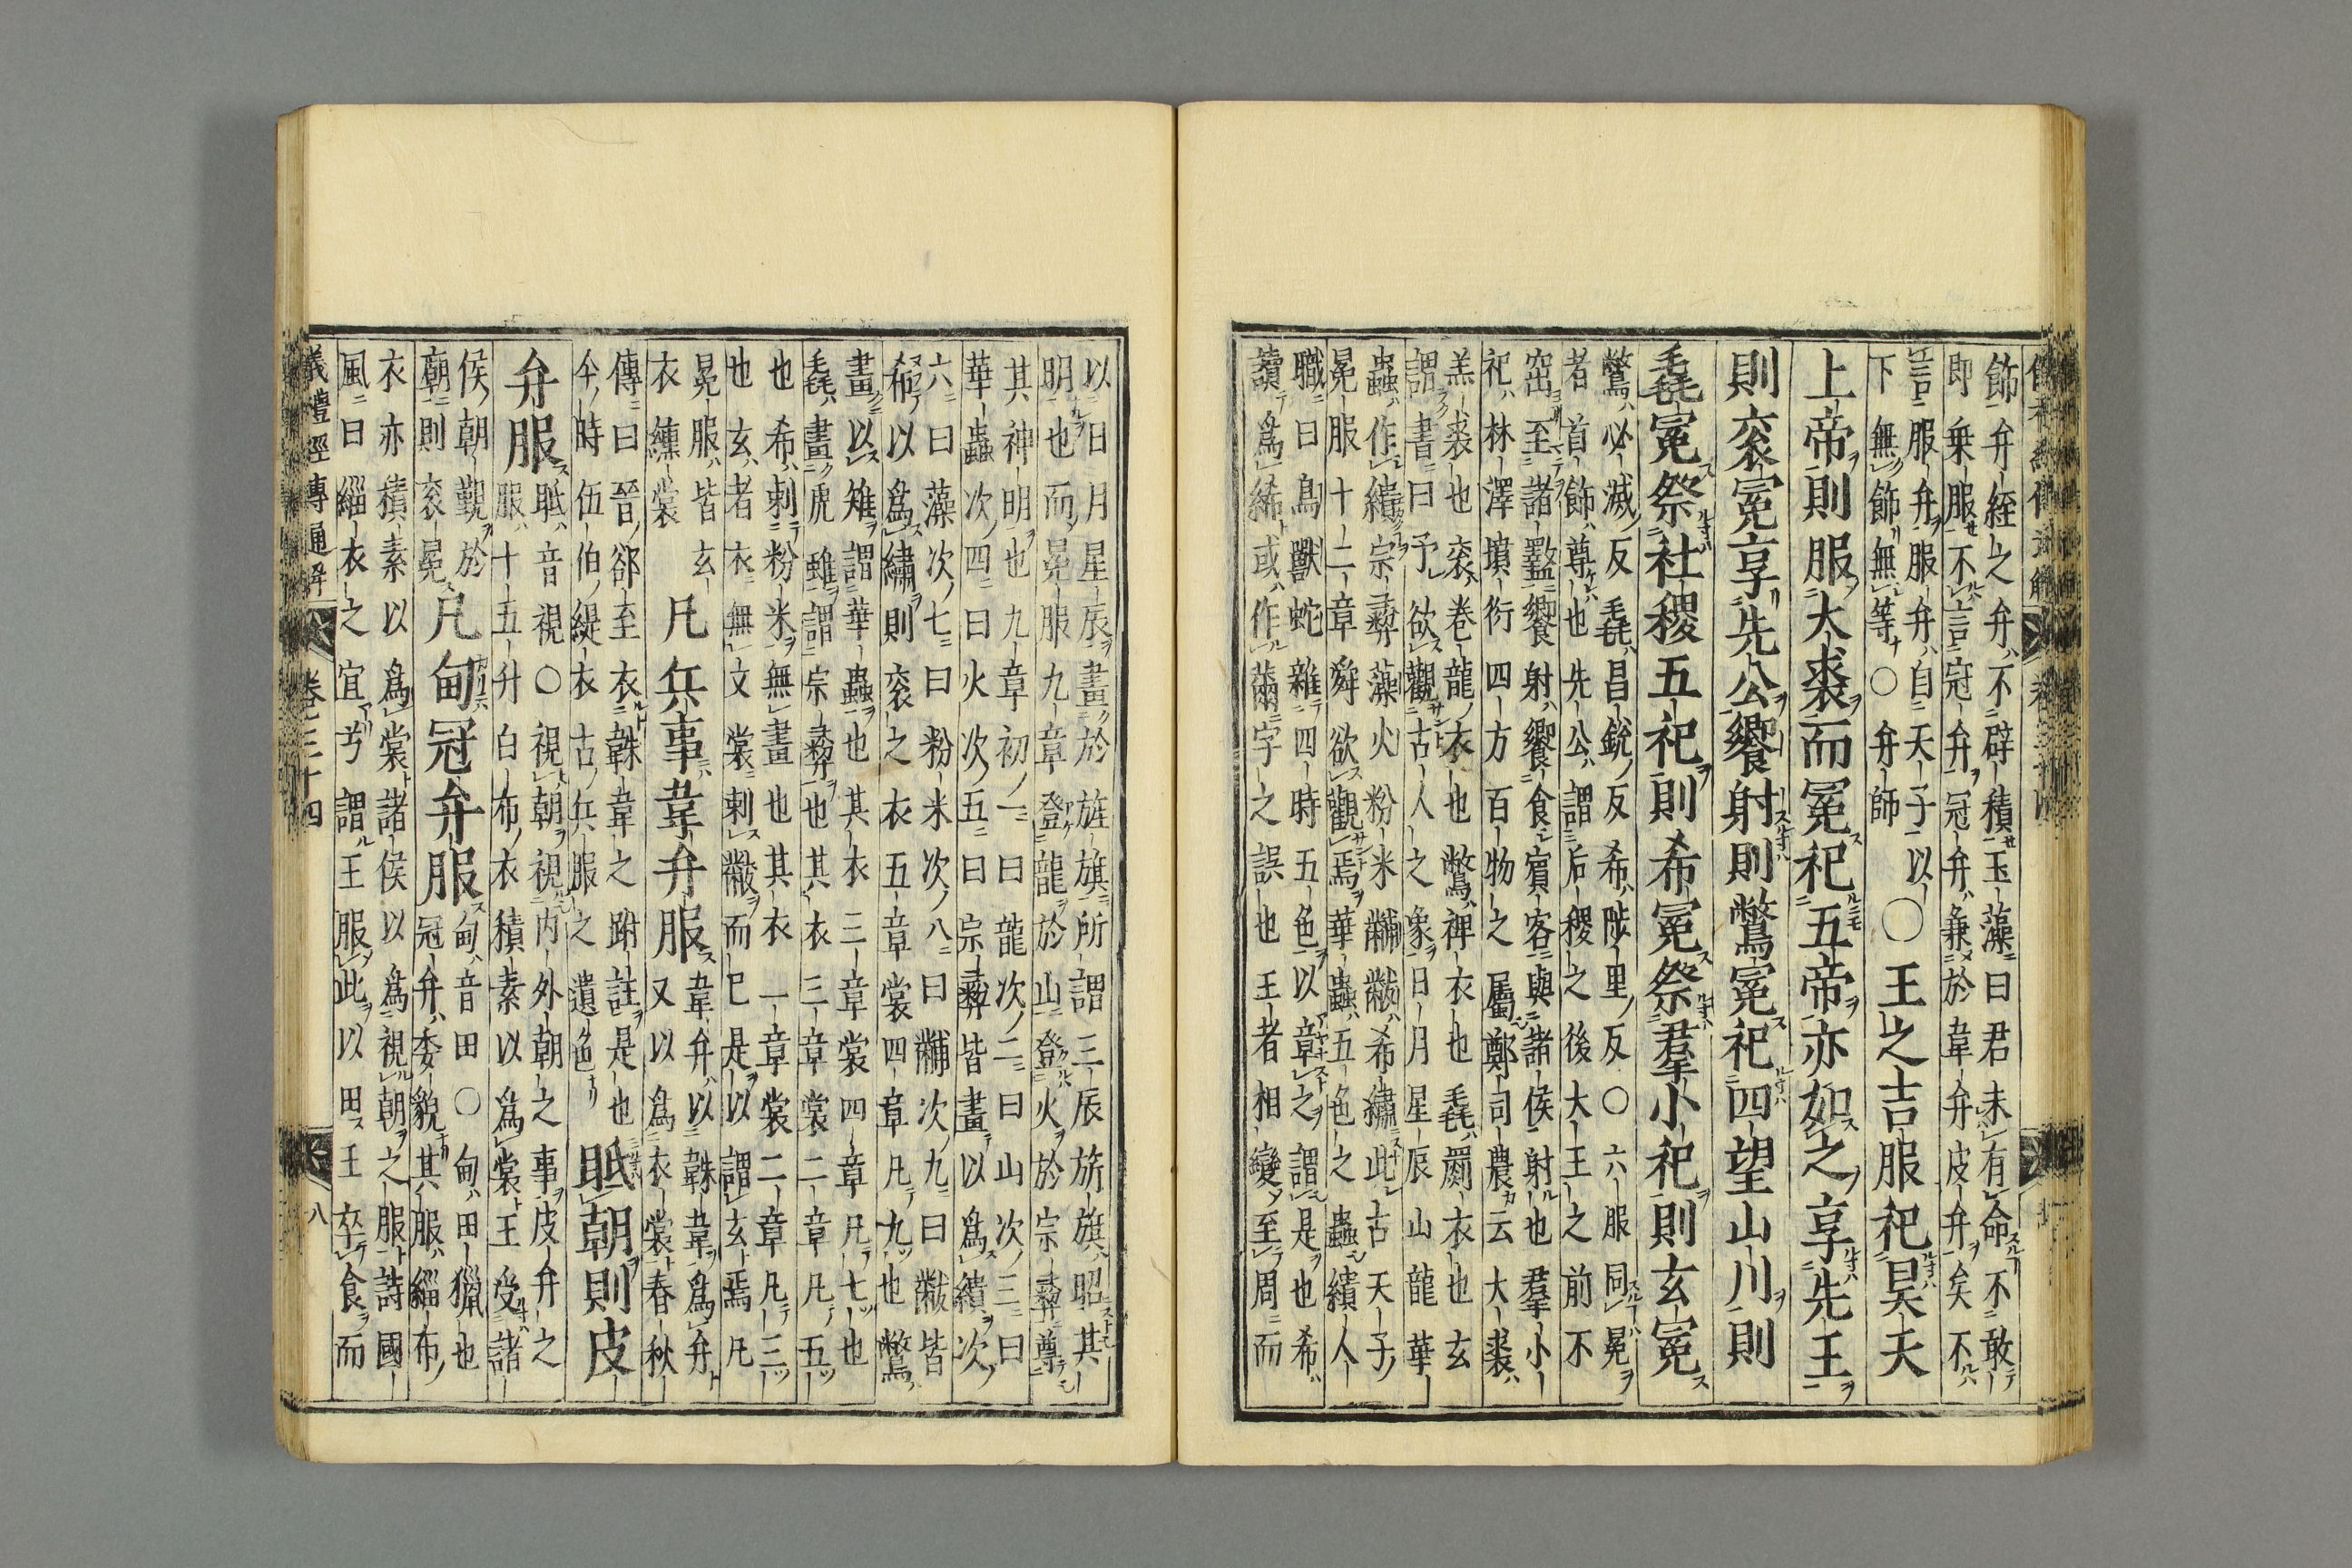 飾弁絰之弁不辟積玉藻曰君未有命不敢
即乗服不言冠弁冠弁兼於韋弁皮弁矣不
言服弁服弁自天子以
下無飾無等○弁師
〇王之吉服祀昊天
上帝則服大裘而冕祀五帝亦如之享先王
則衮冕享先公饗射則鷩冕祀四望山川則
毳冕祭社稷五祀則希冕祭羣小祀則玄冕
鷩必滅反毳昌銳反希陟里反○六服同冕
者首飾尊也先公謂后稷之後大王之前不
窋至諸盩饗射饗食賓客與諸侯射也羣小
祀林澤墳衍四方百物之屬鄭司農云大裘
羔裘也衮卷龍衣也鷩禆衣也毳罽衣也玄
謂書曰予欲觀古人之象日月星辰山龍華
蟲作繢宗彝藻火粉米黼黻希繡此古天子
冕服十二章舜欲觀焉華蟲五色之蟲繢人
職曰鳥獸蛇雜四時五色以章之謂是也希
讀爲絺或作黹字之誤也王者相變至周而
以日月星辰畫於旌旗所謂三辰旂旗昭其
明也而冕服九章登龍於山登火於宗彝尊
其神明也九章初一曰龍次二曰山次三曰
華蟲次四曰火次五曰宗彝皆畫以爲繢次
六曰藻次七曰粉米次八曰黼次九曰黻皆
希以爲繡則衮之衣五章裳四章凡九也鷩
畫以雉謂華蟲也其衣三章裳四章凡七也
毳畫虎蜼謂宗彝也其衣三章裳二章凡五
也希刺粉米無畫也其衣一章裳二章凡三
也玄者衣無文裳刺黻而已是以謂玄焉凡
冕服皆玄
衣纁裳
凡兵事韋弁服
韋弁以韎韋爲弁
又以爲衣裳春秋
傳曰晉郤至衣韎韋之跗註是也
今時伍伯緹衣古兵服之遺色
眡朝則皮
弁服
眡音視○視朝視内外朝之事皮弁之
服十五升白布衣積素以爲裳王受諸
侯朝覲於
廟則衮冕
凡甸冠弁服
甸音田○甸田獵也
冠弁委貌其服緇布
衣亦積素以爲裳諸侯以爲視朝之服詩國
風曰緇衣之宜兮謂王服此以田王卒食而
儀禮經傳通解
卷三十四
八